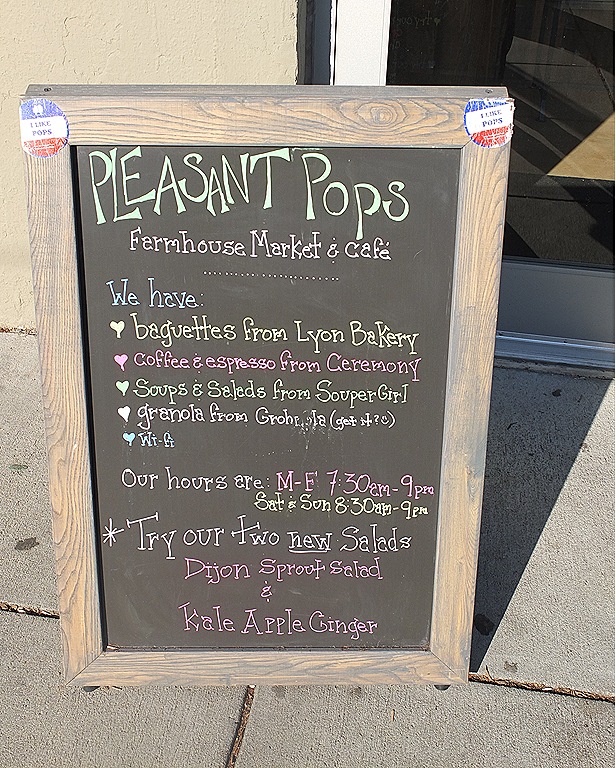 I LIKE
POPS
I LIKE
POPS
PLEASANT Pops
Farmhouse Market & café
We have:
baguettes from Lyon Bakery
coffee & espresso from Ceremony
Soups & Salads from SouperGirl
granola from (get it?☺)
Wi-fi
Our hours are: M-F 7:30am-9pm
Sat & Sun 8:30am-9pm
*Try our two new Salads
Dijon Sprout Salad
&
Kale Apple Ginger